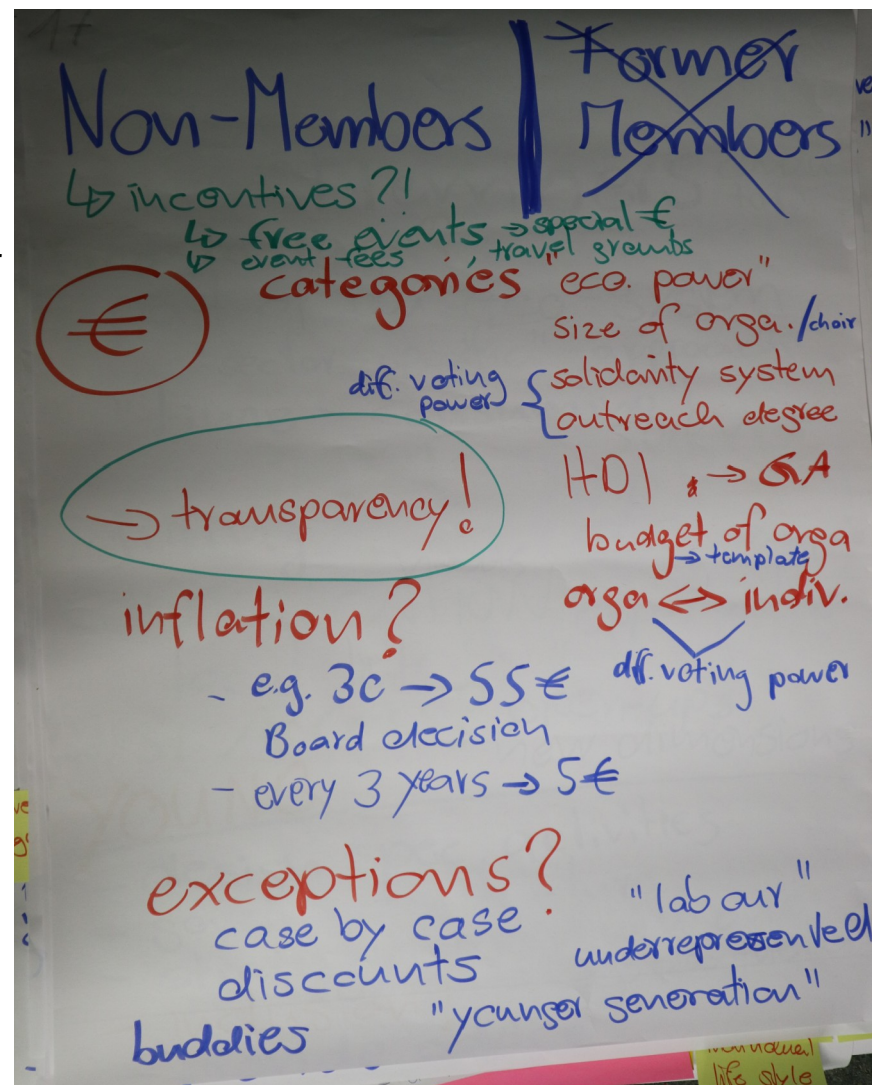 17
Non-Members
Former
Members
↳ incentives?!
↳ free events → special €
↳ event fees , travel grants
€
categories "eco. power"
size of orga. /choir
diff. voting
power
solidarity system
outreach degree
→ transparency!
HDI → GA
budget of orga
→ template
orga ↔ indiv.
diff. voting power
inflation?
- e.g. 3c → 55€
Board decision
- every 3 years → 5€
exceptions?
case by case
discounts
buddies
"labour"
underrepresented
"younger generation"
individual
life style